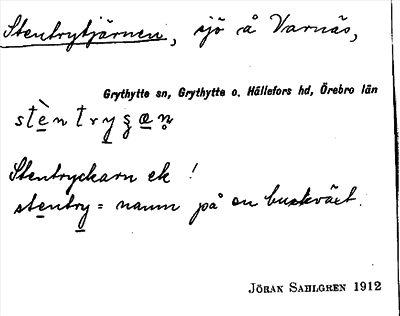 Stentrytjärnen, sjö å Varnäs,
Grythytte sn, Grythytte o. Hällefors hd, Örebro län
Stentryckarn ek !
stentry = namn på en buskväxt.
JÖRAN SAHLGREN 1912